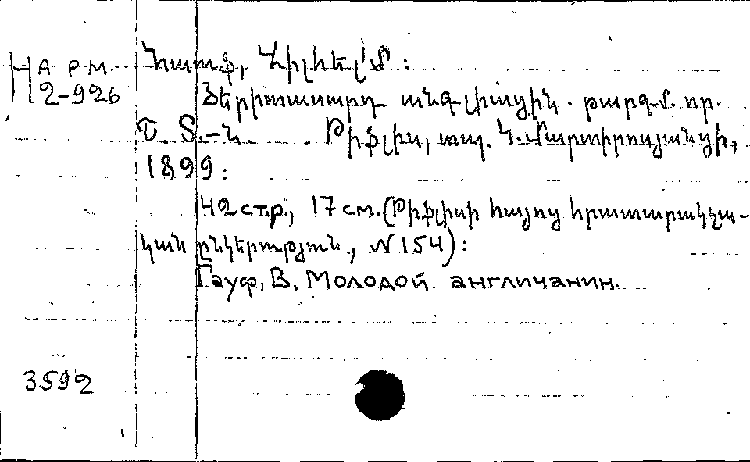 На рм
2-926
Հաուֆ, Վիլհելմ:
Երիտասարդ անգլիացին. թարգմ.
Տ.-ն. Թիֆլիս, տպ. Կ. Մարտիրոսյանցի,
1899:
42 стр., 17 см. (Թիֆլիսի հայոց հրատարակչա-
կան ընկերություն, N 154):
Гауф, В. Молодой англичанин.
3592